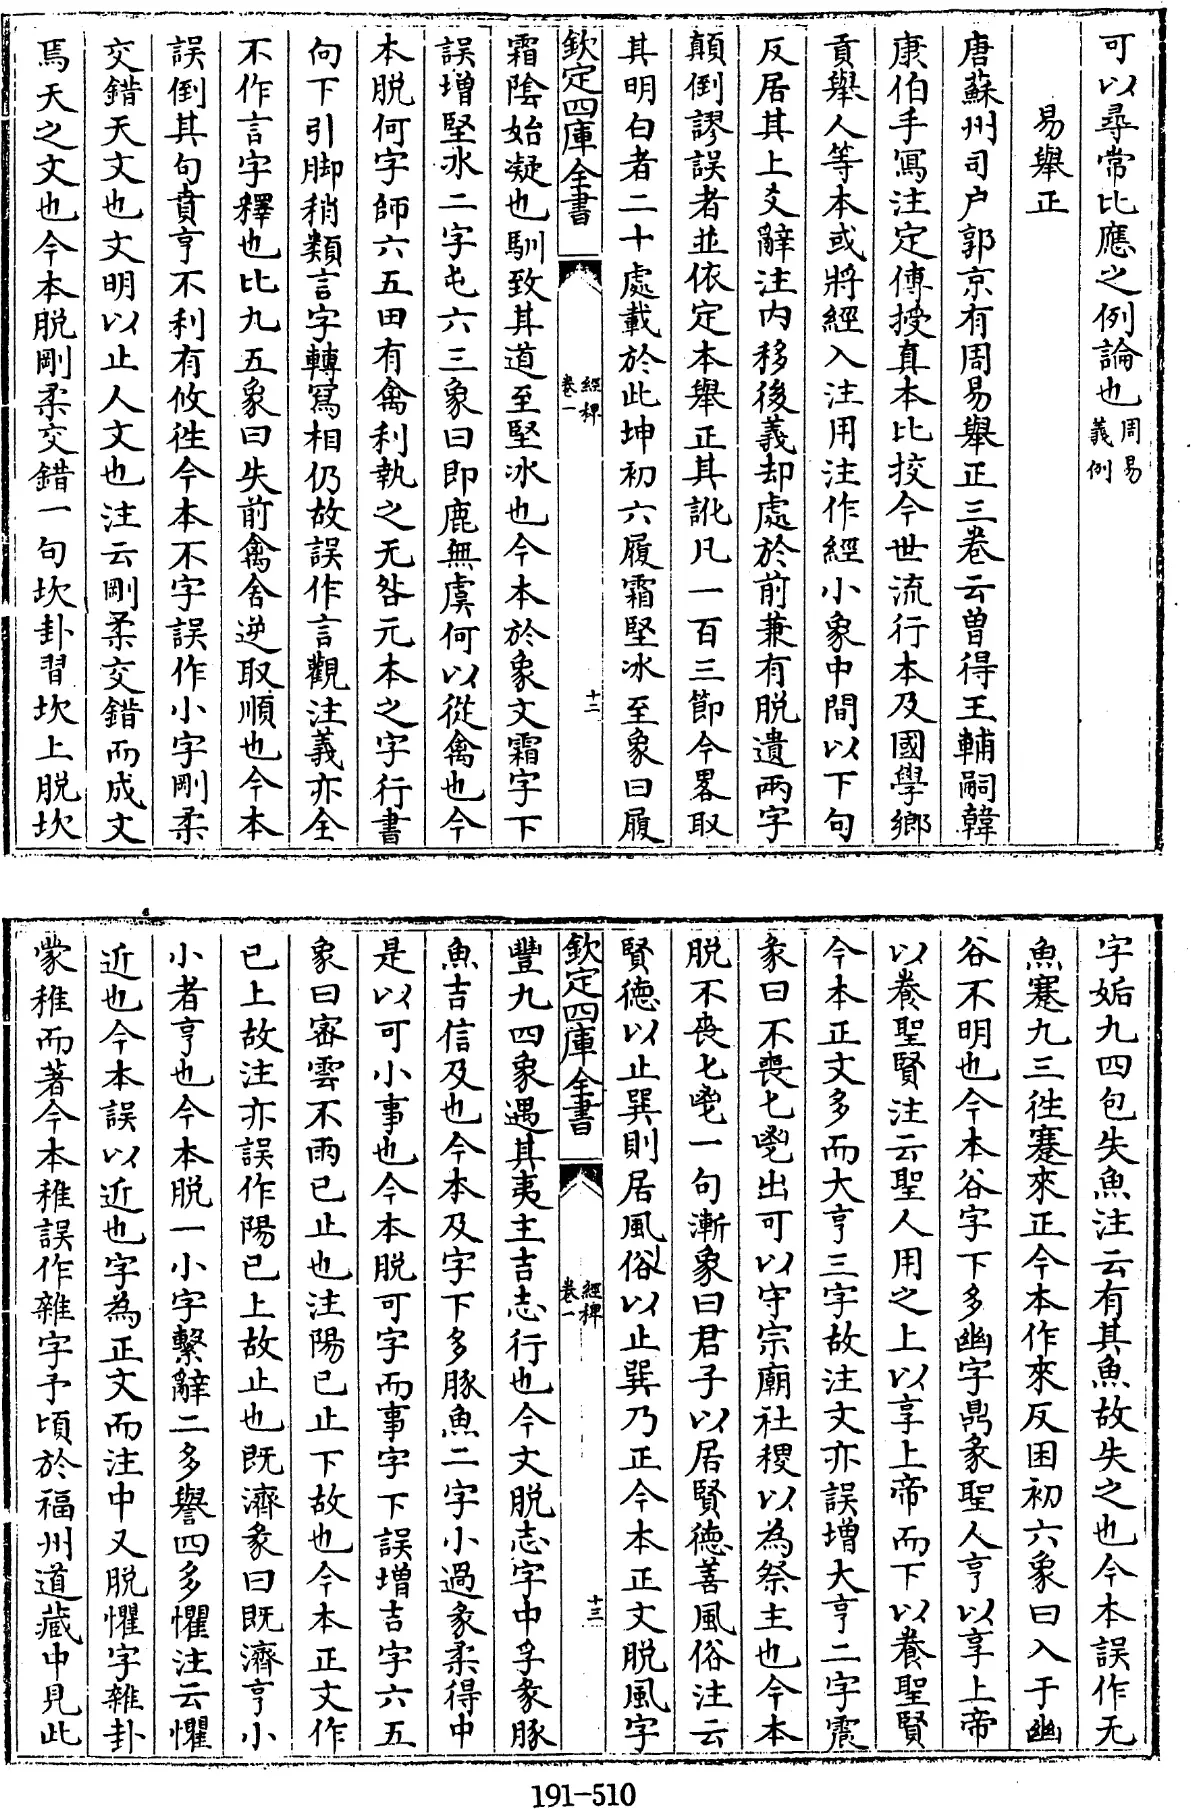 可以尋常比應之例論也周易義例
易舉正
唐蘇州司户郭京有周易舉正三卷云曽得王輔嗣韓
康伯手寫注定傳授真本比挍今世流行本及國學鄉
貢舉人等本或將經入注用注作經小象中間以下句
反居其上爻辭注内移後義却處於前兼有脱遺兩字
顛倒謬誤者並依定本舉正其訛凡一百三節今畧取
其明白者二十處載於此坤初六履霜堅冰至象曰履
欽定四庫全書
經稗
卷一
十二
霜隂始凝也馴致其道至堅冰也今本於象文霜字下
誤增堅冰二字屯六三象曰即鹿無虞何以從禽也今
本脱何字師六五田有禽利執之无咎元本之字行書
向下引脚稍類言字轉寫相仍故誤作言觀注義亦全
不作言字釋也比九五象曰失前禽舍逆取順也今本
誤倒其句賁亨不利有攸徃今本不字誤作小字剛柔
交錯天文也文明以止人文也注云剛柔交錯而成文
焉天之文也今本脱剛柔交錯一句坎卦習坎上脱坎
字姤九四包失魚注云有其魚故失之也今本誤作无
魚蹇九三徃蹇來正今本作來反困初六象曰入于幽
谷不明也今本谷字下多幽字鼎彖聖人亨以享上帝
以養聖賢注云聖人用之上以享上帝而下以養聖賢
今本正文多而大亨三字故注文亦誤增大亨二字震
彖曰不喪匕鬯出可以守宗廟社稷以為祭主也今本
脱不喪匕鬯一句漸象曰君子以居賢徳善風俗注云
賢徳以止巽則居風俗以止巽乃正今本正文脱風字
欽定四庫全書
經稗
卷一
十三
豐九四象遇其夷主吉志行也今文脱志字中孚彖豚
魚吉信及也今本及字下多豚魚二字小過彖柔得中
是以可小事也今本脱可字而事字下誤增吉字六五
象曰宻雲不雨已止也注陽已止下故也今本正文作
已上故注亦誤作陽已上故止也既濟彖曰既濟亨小
小者亨也今本脱一小字繫辭二多譽四多懼注云懼
近也今本誤以近也字為正文而注中又脱懼字雜卦
蒙稚而著今本稚誤作雜字予頃於福州道藏中見此
191-510